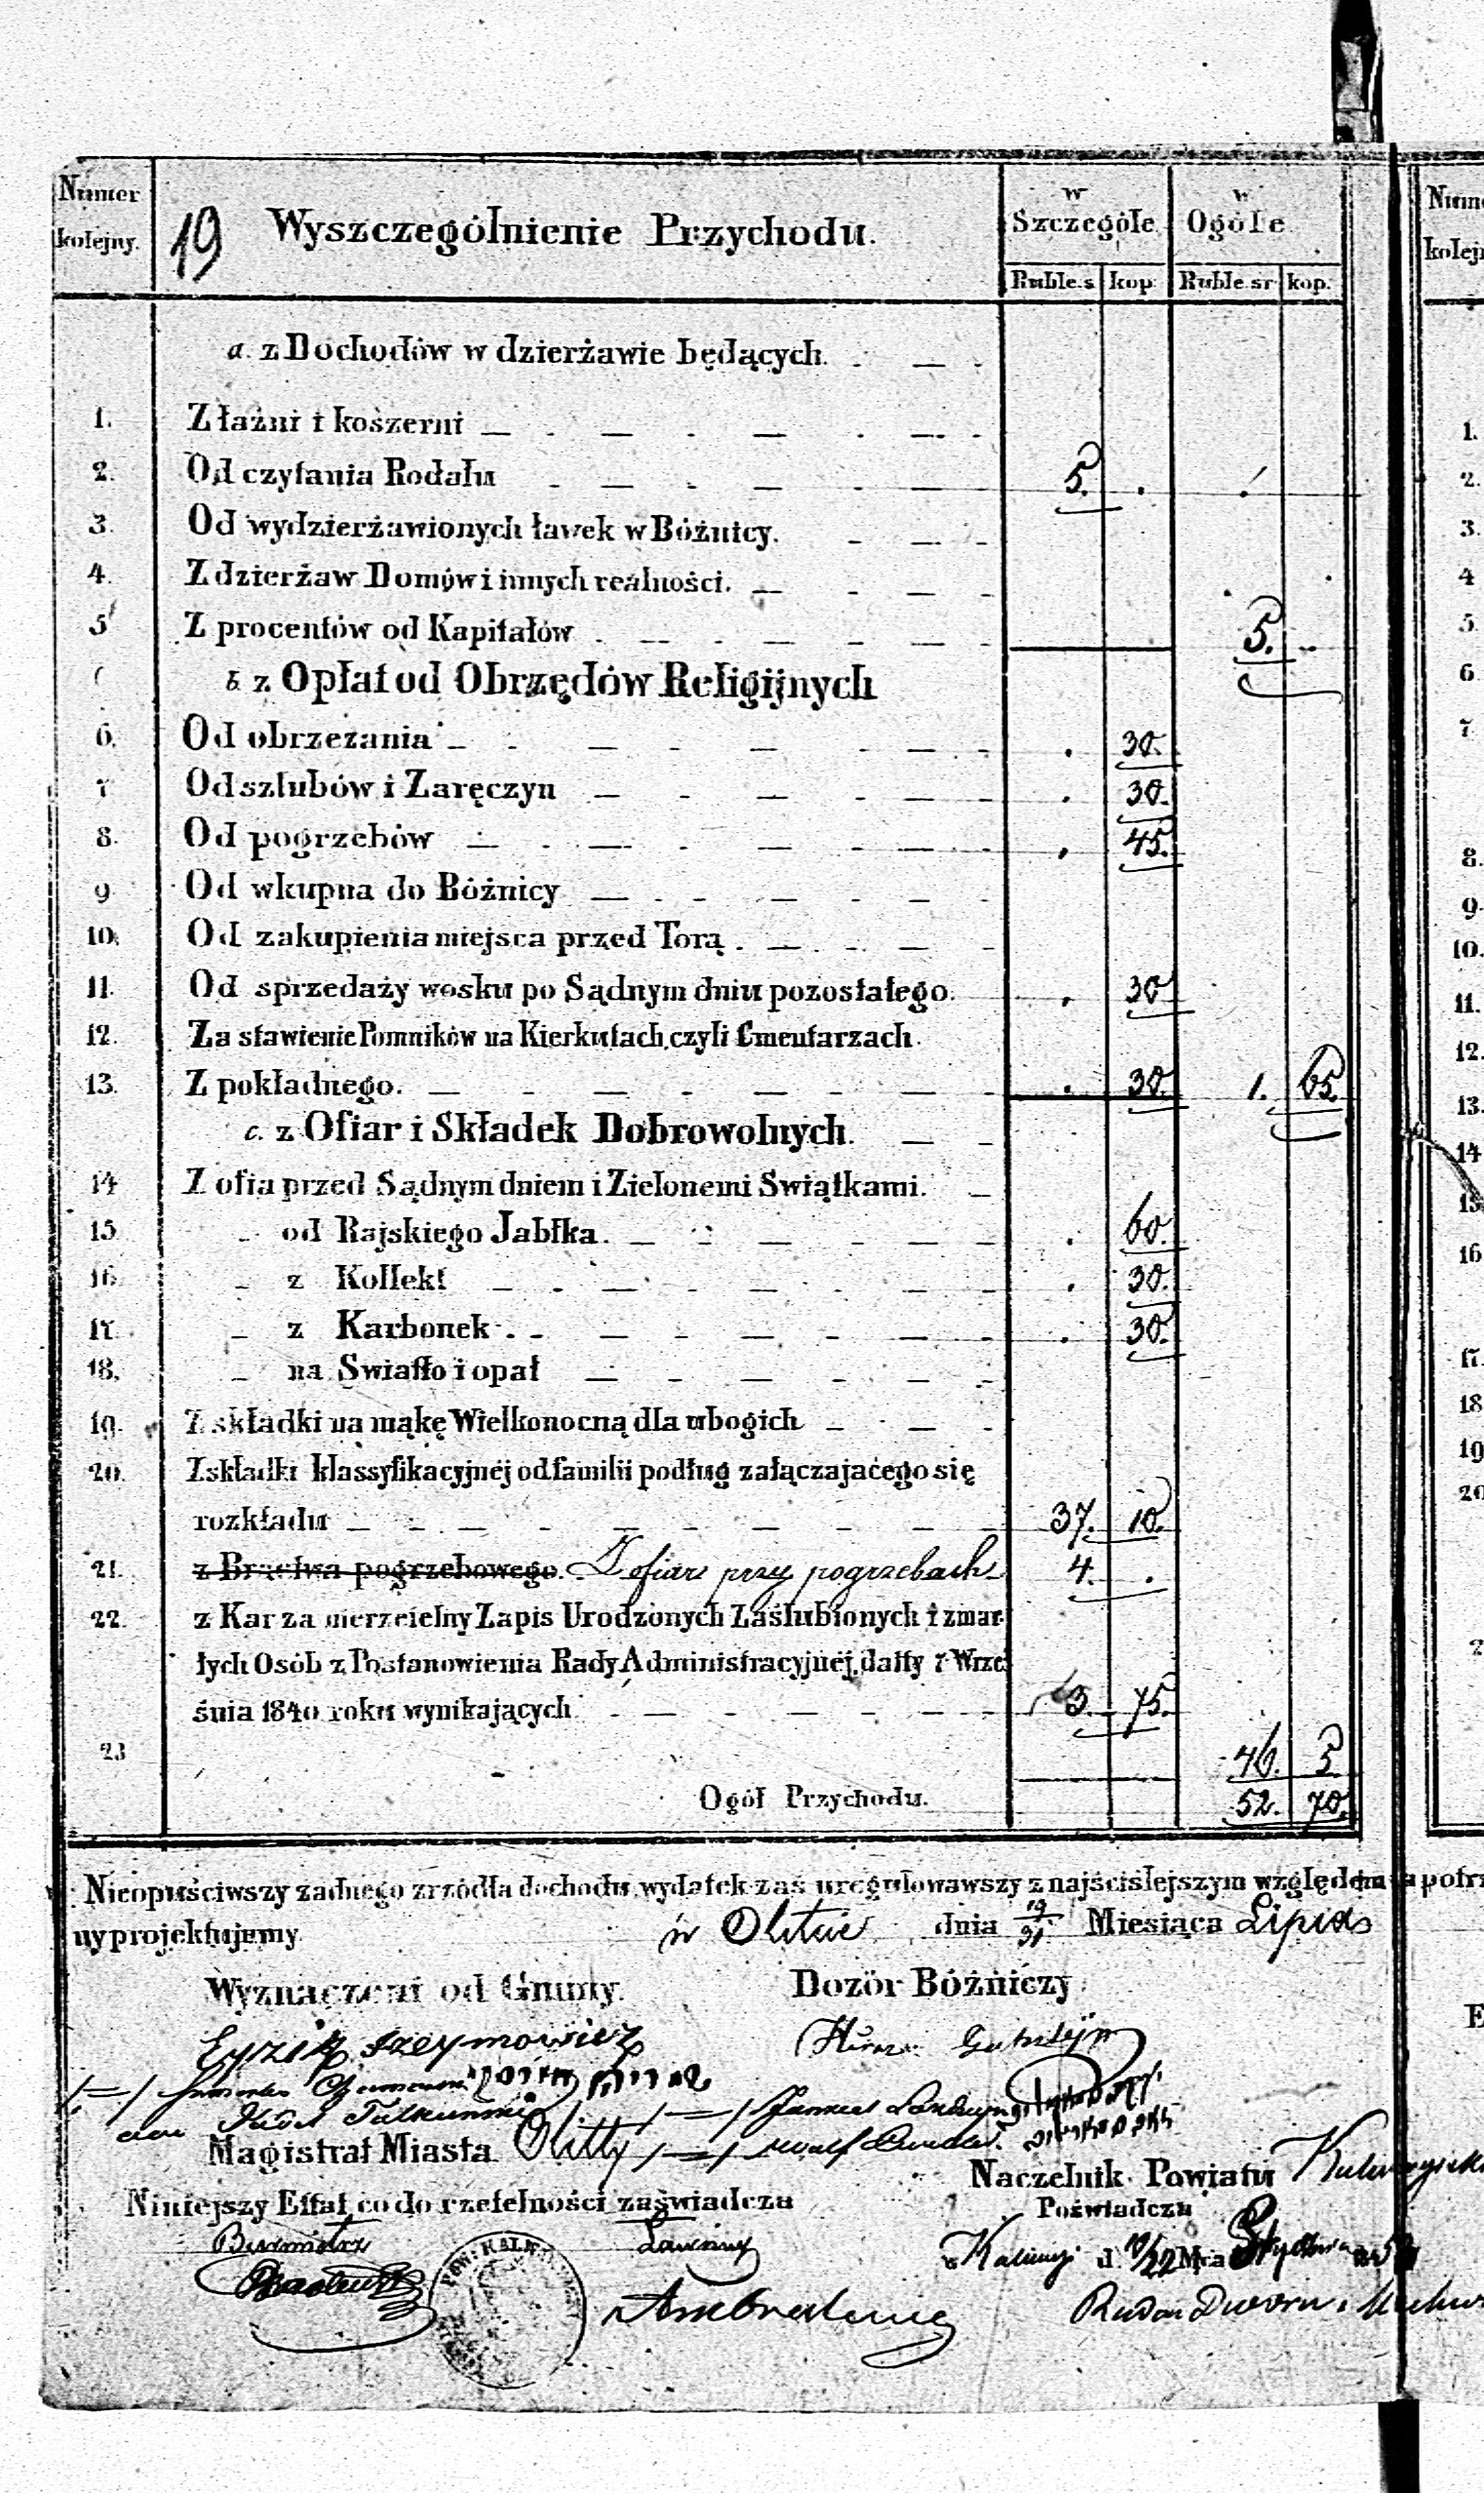 Numer kolejny.
19 Wyszczególnienie Przychodu.
w Szczególe
w Ogóle
Ruble.s kop: Ruble.sr kop:
a. z Dochodów w dzierżawie będących.
1. Z łaźni i koszerni
2. Od czytania Rodału 5.
3. Od wydzierżawionych ławek w Bóżnicy.
4. Z dzierżaw Domów i innych realności.
5 Z procentów od Kapitałów 5.
b. z Opłat od Obrzędów Religijnych
6. Od obrzezania 30.
7 Od szlubów i Zaręczyn 30.
8. Od pogrzebów 45.
9 Od wkupna do Bóżnicy
10. Od zakupienia miejsca przed Torą.
11. Od sprzedaży wosku po Sądnym dniu pozostałego. 30
12. Za stawienie Pomników na Kierkutach, czyli Cmentarzach.
13. Z pokładnego. 30. 1. 65.
c. z Ofiar i Składek Dobrowolnych.
14 Z ofia przed Sądnym dniem i Zielonemi Swiątkami.
15 od Rajskiego Jabłka. 60.
16. z Kollekt 30.
17. z Karbonek. 30.
18. na Swiatło i opał
19. Z składki na mąkę Wielkonocną dla ubogich
20. Z składki klassyfikacyjnéj od familii podług załączającego się
rozkładu 37. 10.
21. z Bractwa pogrzebowego. Z ofiar przy pogrzebach 4.
22. z Kar za nierzetelny Zapis Urodzonych Zaślubionych i zmar-
łych Osób z Postanowienia Rady Administracyjnéj, datty 7 Wrze
śnia 1840 roku wynikających 3. 75.
23 46. 5
Ogół Przychodu. 52. 70.
Nieopuściwszy żadnego zrzódła dochodu, wydatek zaś uregulowawszy z najściślejszym względem
ny projektujemy
w Olitcie dnia 19/31 Miesiąca Lipca
Wyznaczeni od Gminy. Dozór Bóżniczy
Magistrat Miasta Olitty
Naczelnik Powiatu
Niniejszy Ettat co do rzetelności zaświadcza
Poświadcza
Burmistrz Ławnik
Numer
kolejny
1.
2.
3.
4
5.
6.
7.
8.
9.
10.
11.
12.
13.
14
15
16
17.
18
19
20